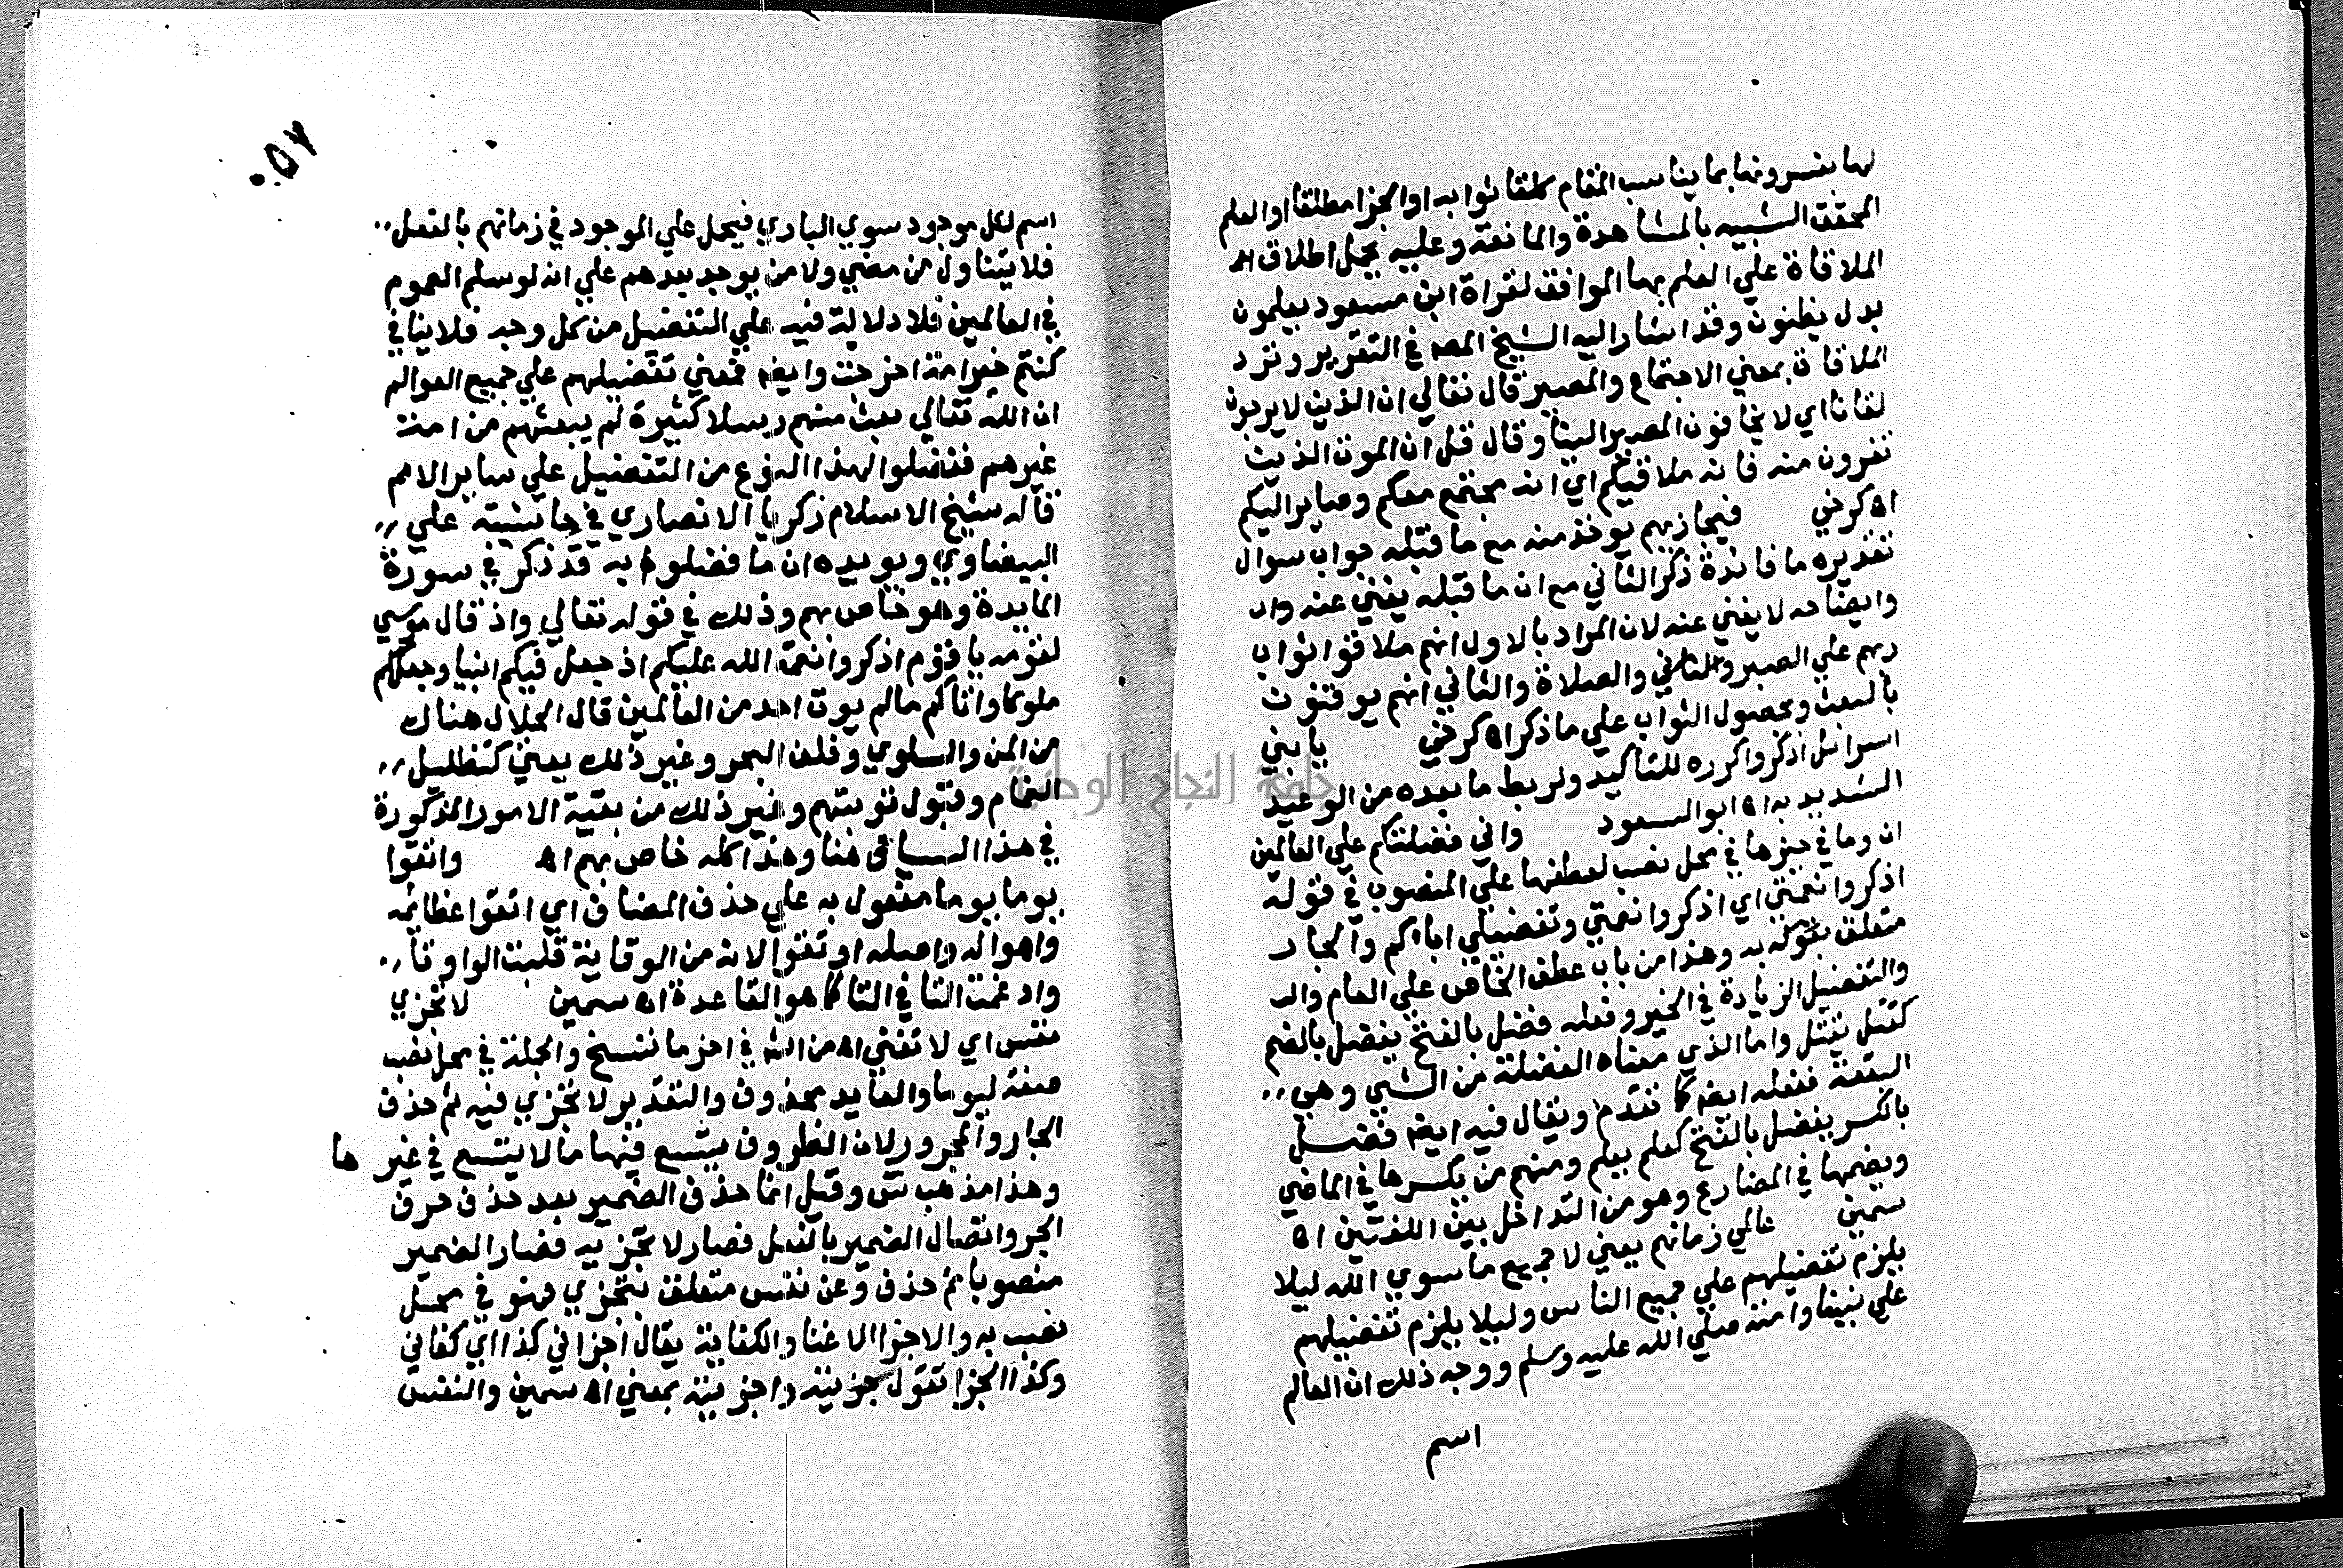 لهما يفسرونها بما يناسب المقام كلقا ثوابه او الجزا مطلقا او العلم
المحقق الشبيه بالمشاهدة والمانعة وعليه يحمل اطلاق اه
الملاقاة علي العلم بهما الموافق لقراة ابن مسعود يعلمون
بدل يظنون وقد اشار اليه الشيخ المصـ في التقرير وترد
الملاقاة بمعني الاجتماع والمصير قال تعالي ان الذين لا يرجون
لقانا اي لا يخافون المصير الينا وقال قل ان الموت الذي
تفرون منه فانه ملاقيكم اي انه مجتمع معكم وصاير اليكم
اه كرخي فيجازيهم يوخذ منه مع ما قبله جواب سوال
تقديره ما فائدة ذكر الثاني مع ان ما قبله يغني عنه وا
وايضاحه لا يغني عنه لان المراد بالاول انهم ملاقوا ثواب
ربهم علي الصبر والصلاة والثاني انهم يوقنون
بالبعث وبحصول الثواب علي ما ذكر اه كرخي يا بني
اسرائل اذكروا كرره للتاكيد ولربط ما بعده من الوعيد
الشديد به اه ابو السعود واني فضلتكم علي العالمين
ان وما في حيزها في محل نصب لعطفها علي المنصوب في قوله
اذكروا نعمتي اي اذكروا نعمتي وتفضيلي اباكم والجار
متعلق بقوله به وهذا من باب عطف الخاص علي العام وال
والتفضيل الزيادة في الخير وفعله فضل بالفتح يفضل بالضم
كقتل يقتل واما الذي معناه الفضلة من الشي وهي ,,
البقية ففعله ايضا كما تقدم ويقال فيه ايضا فضل
بالكسر يفضل بالفتح كعلم يعلم ومنهم من يكسرها في الماضي
ويضمها في المضارع وهو من التداخل بين اللغتين اه
سمين عالمي زمانهم يعني لا جميع ما سوي الله ليلا
يلزم تفضيلهم علي جميع الناس وليلا يلزم تفضيلهم
علي نبينا وامته صلي الله عليه وسلم ووجه ذلك ان العالم
اسم
٠٥٧
اسم لكل موجود سوي الباري فيحمل علي الموجود في زمانهم بالفعل ,,
فلا يتناول من مضي ولا من يوجد بعدهم علي انه لو سلم العموم
في العالمين فلا دلالة فيه علي التفضيل من كل وجه فلا ينافي
كنتم خير امة اخرجت وايضا فمعني تفضيلهم علي جميع العوالم
ان الله تعالي بعث منهم رسلا كثيرة لم يبعثهم من امة
غيرهم ففضلوا لهذا النوع من التفضيل علي ساير الامم
قاله شيخ الاسلام زكريا الانصاري في حاشيته علي ,,
البيضاوي ويويده ان ما فضلوا به قد ذكر في سورة
المايدة وهو خاص بهم وذلك في قوله تعالي واذ قال موسي
لقومه يا قوم اذكروا نعمة الله عليكم اذ جعل فيكم انبيا وجعلكم
ملوكا واتاكم ما لم يوت احد من العالمين قال الجلال هناك
من المن والسلوي وفلق البحر وغير ذلك يعني كتظليل ,,
الغمام وقبول توبتهم وغير ذلك من بقية الامور المذكورة
في هذا السياق هنا وهذا كله خاص بهم اه واتقوا
يوما يوما مفعول به علي حذف المضاف اي اتقوا عظائمه
واهواله واصله اوتقوا لانه من الوقاية قلبت الواو تا ,,
وادغمت التا في التا كما هو القاعدة اه سمين لا تجزي
نفس اي لا تغني اه من الله في اخر ما ننسخ والجملة في محل نصب
صفة ليوما والعايد محذوف والتقدير لا تجزي فيه ثم حذف
الجار والمجرور لان الظروف يتسع فيها ما لا يتسع في غيرها
وهذا مذهب س وقيل انما حذف الضمير بعد حذف حرف
الجر واتصال الضمير بالفعل فصار لا تجزيه فصار الضمير
منصوبا ثم حذف وعن نفس متعلق بتجزي فهو في محل
نصب به والاجزا الاغنا والكفاية يقال اجزاني كذا اي كفاني
وكذا الجزا تقول جزيته واجزيته بمعني اه سمين والنفس
جامعة النجاح الوطنية